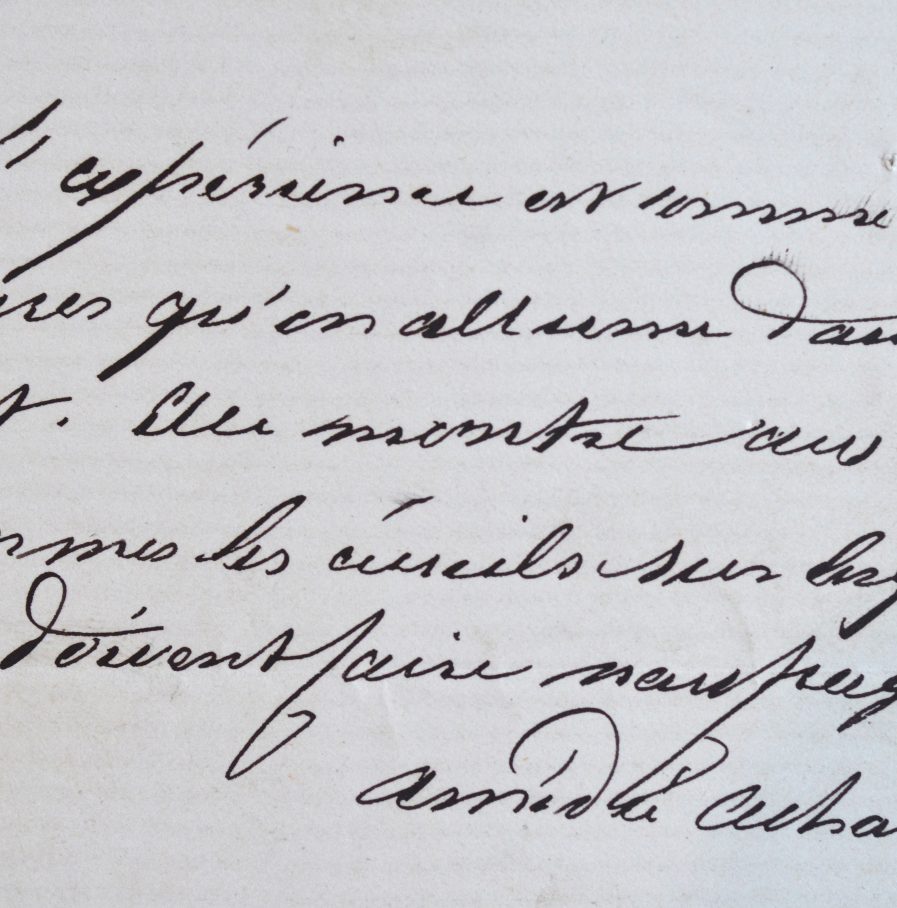 L'expérience est comme
res qu'on allume dan
t. Elle montre aux
mmes les écueils sur lesq
doivent faire naufrag
Amédée Acha